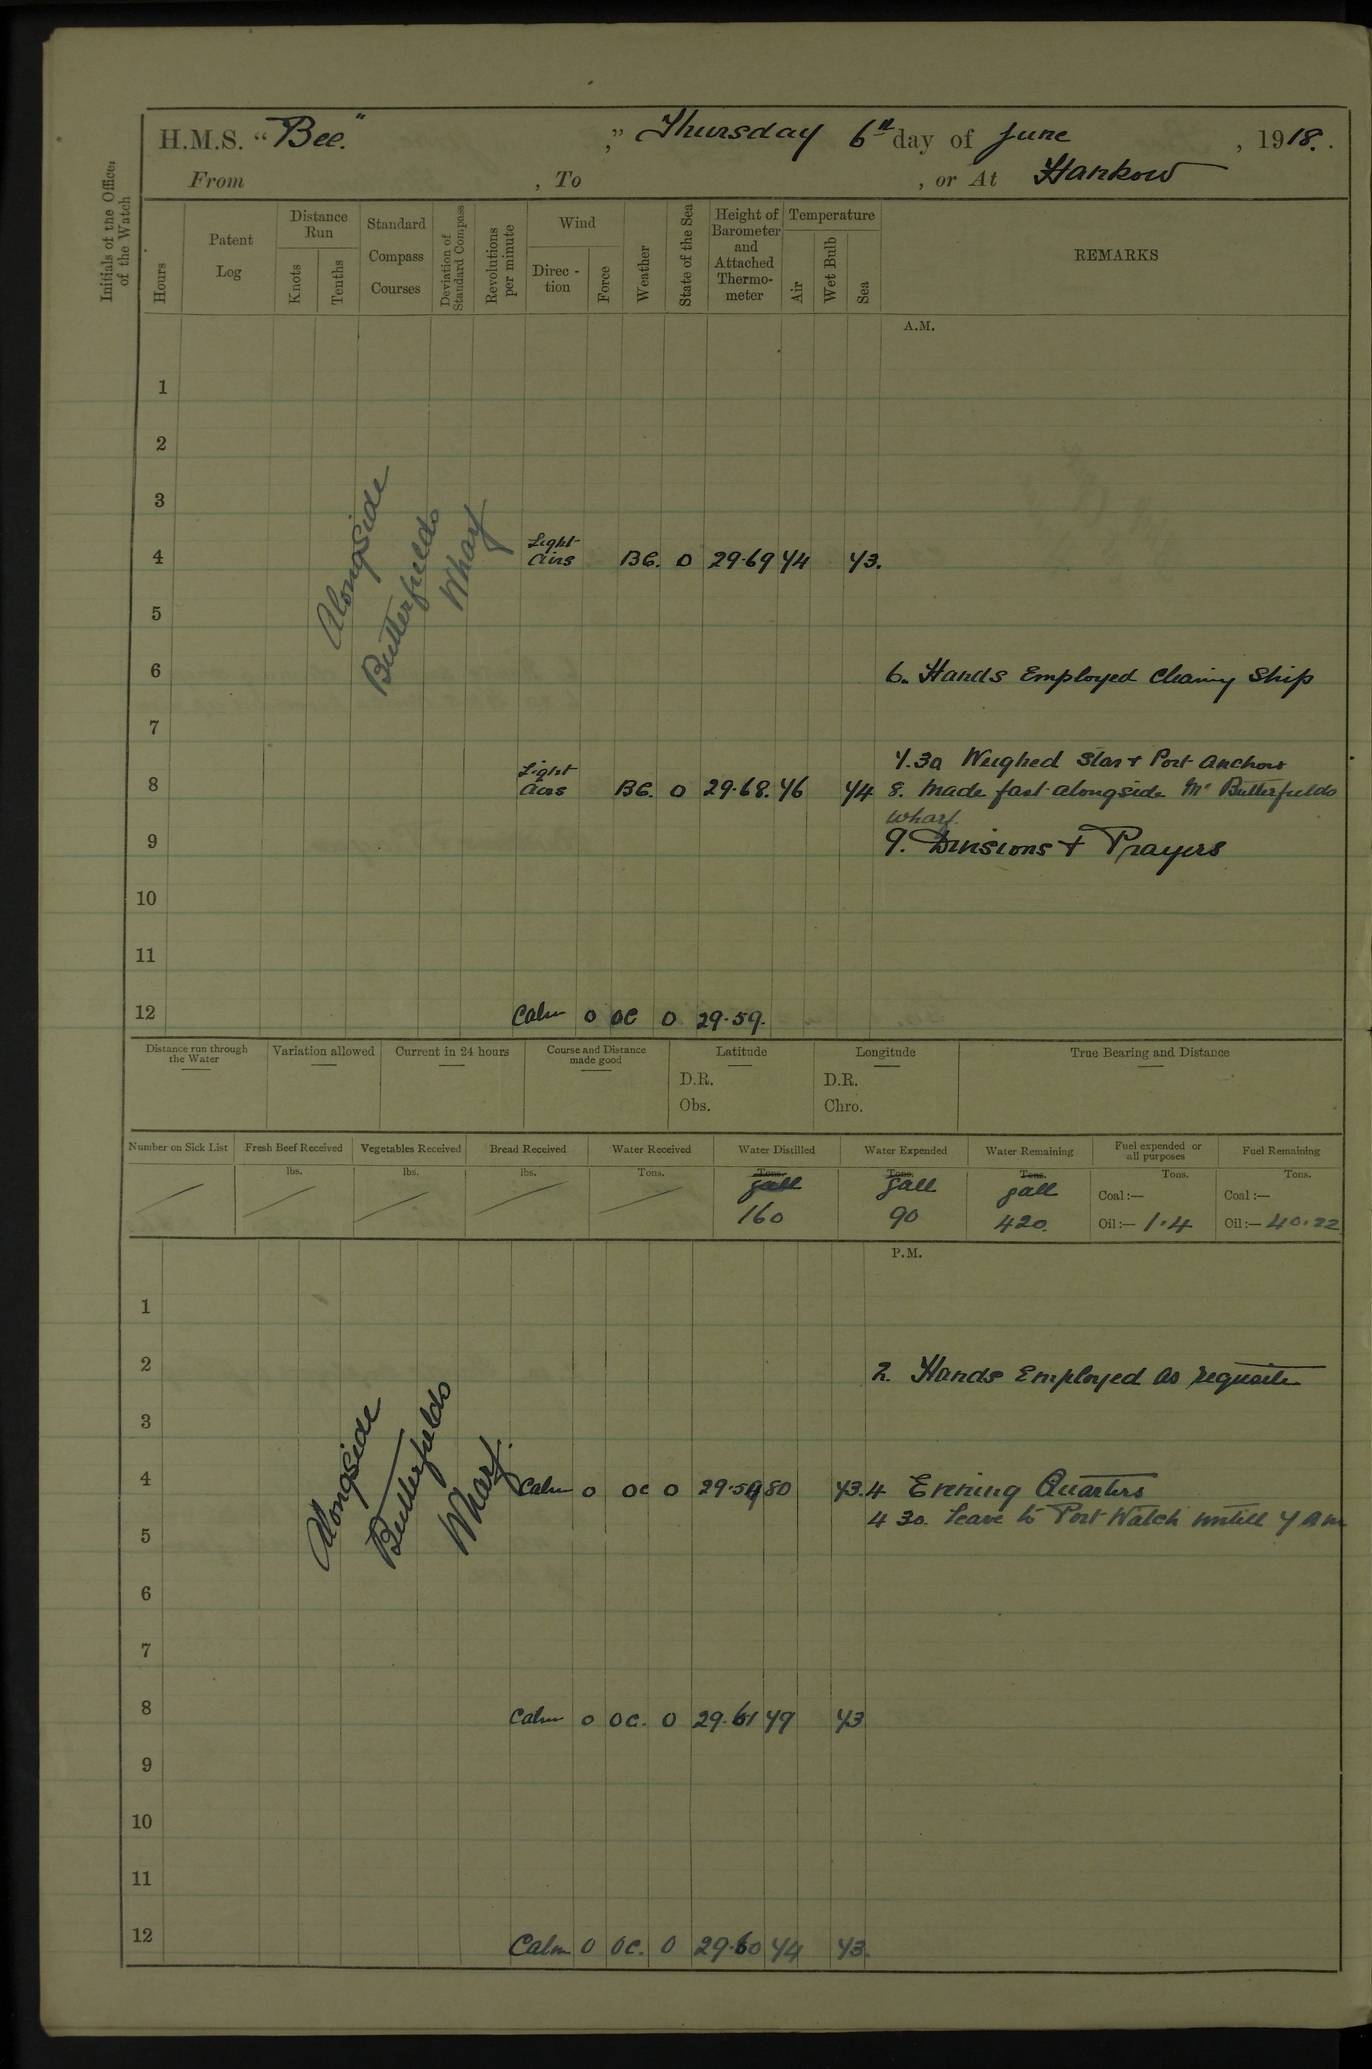 H.M.S. "Bee." ," Thursday 6th day of June , 1918.
From , To , or At Hankow
Initials of the Officer of the Watch
Hours
Patent Log
Distance Run
Knots
Tenths
Standard Compass Courses
Deviation of Standard Compass
Revolutions per minute
Wind
Direc-tion
Force
Weather
State of the Sea
Height of Barometer and Attached Thermo-meter
Temperature
Air
Wet Bulb
Sea
REMARKS
A.M.
1
2
3
Alongside
Butterfields
Wharf
4 Light Airs BC. 0 29.69 74 73.
5
6 6. Hands Employed Cleaning Ship
7
7.30 Weighed Star & Port Anchors
8 Light Airs BC. 0 29.68. 76 74 8. Made fast alongside Mr Butterfields
wharf.
9 9. Divisions & Prayers
10
11
12 Calm 0 OC 0 29.59.
Distance run through the Water
Variation allowed
Current in 24 hours
Course and Distance made good
Latitude
D.R.
Obs.
Longitude
D.R.
Chro.
True Bearing and Distance
Number on Sick List
Fresh Beef Received
lbs.
Vegetables Received
lbs.
Bread Received
lbs.
Water Received
Tons.
Water Distilled
Tons.
gall
160
Water Expended
Tons.
gall
90
Water Remaining
Tons.
gall
420.
Fuel expended or all purposes
Tons.
Coal :—
Oil :— 1.4
Fuel Remaining
Tons.
Coal :—
Oil :— 40.22
P.M.
1
2 2. Hands Employed as requisite
3
Alongside
Butterfields
Wharf.
4 Calm 0 OC 0 29.59 80 73. 4 Evening Quarters
4 30. Leave to Port Watch untill 7 am
5
6
7
8 Calm 0 OC. 0 29.61 79 73
9
10
11
12 Calm 0 OC. 0 29.60 74 73.